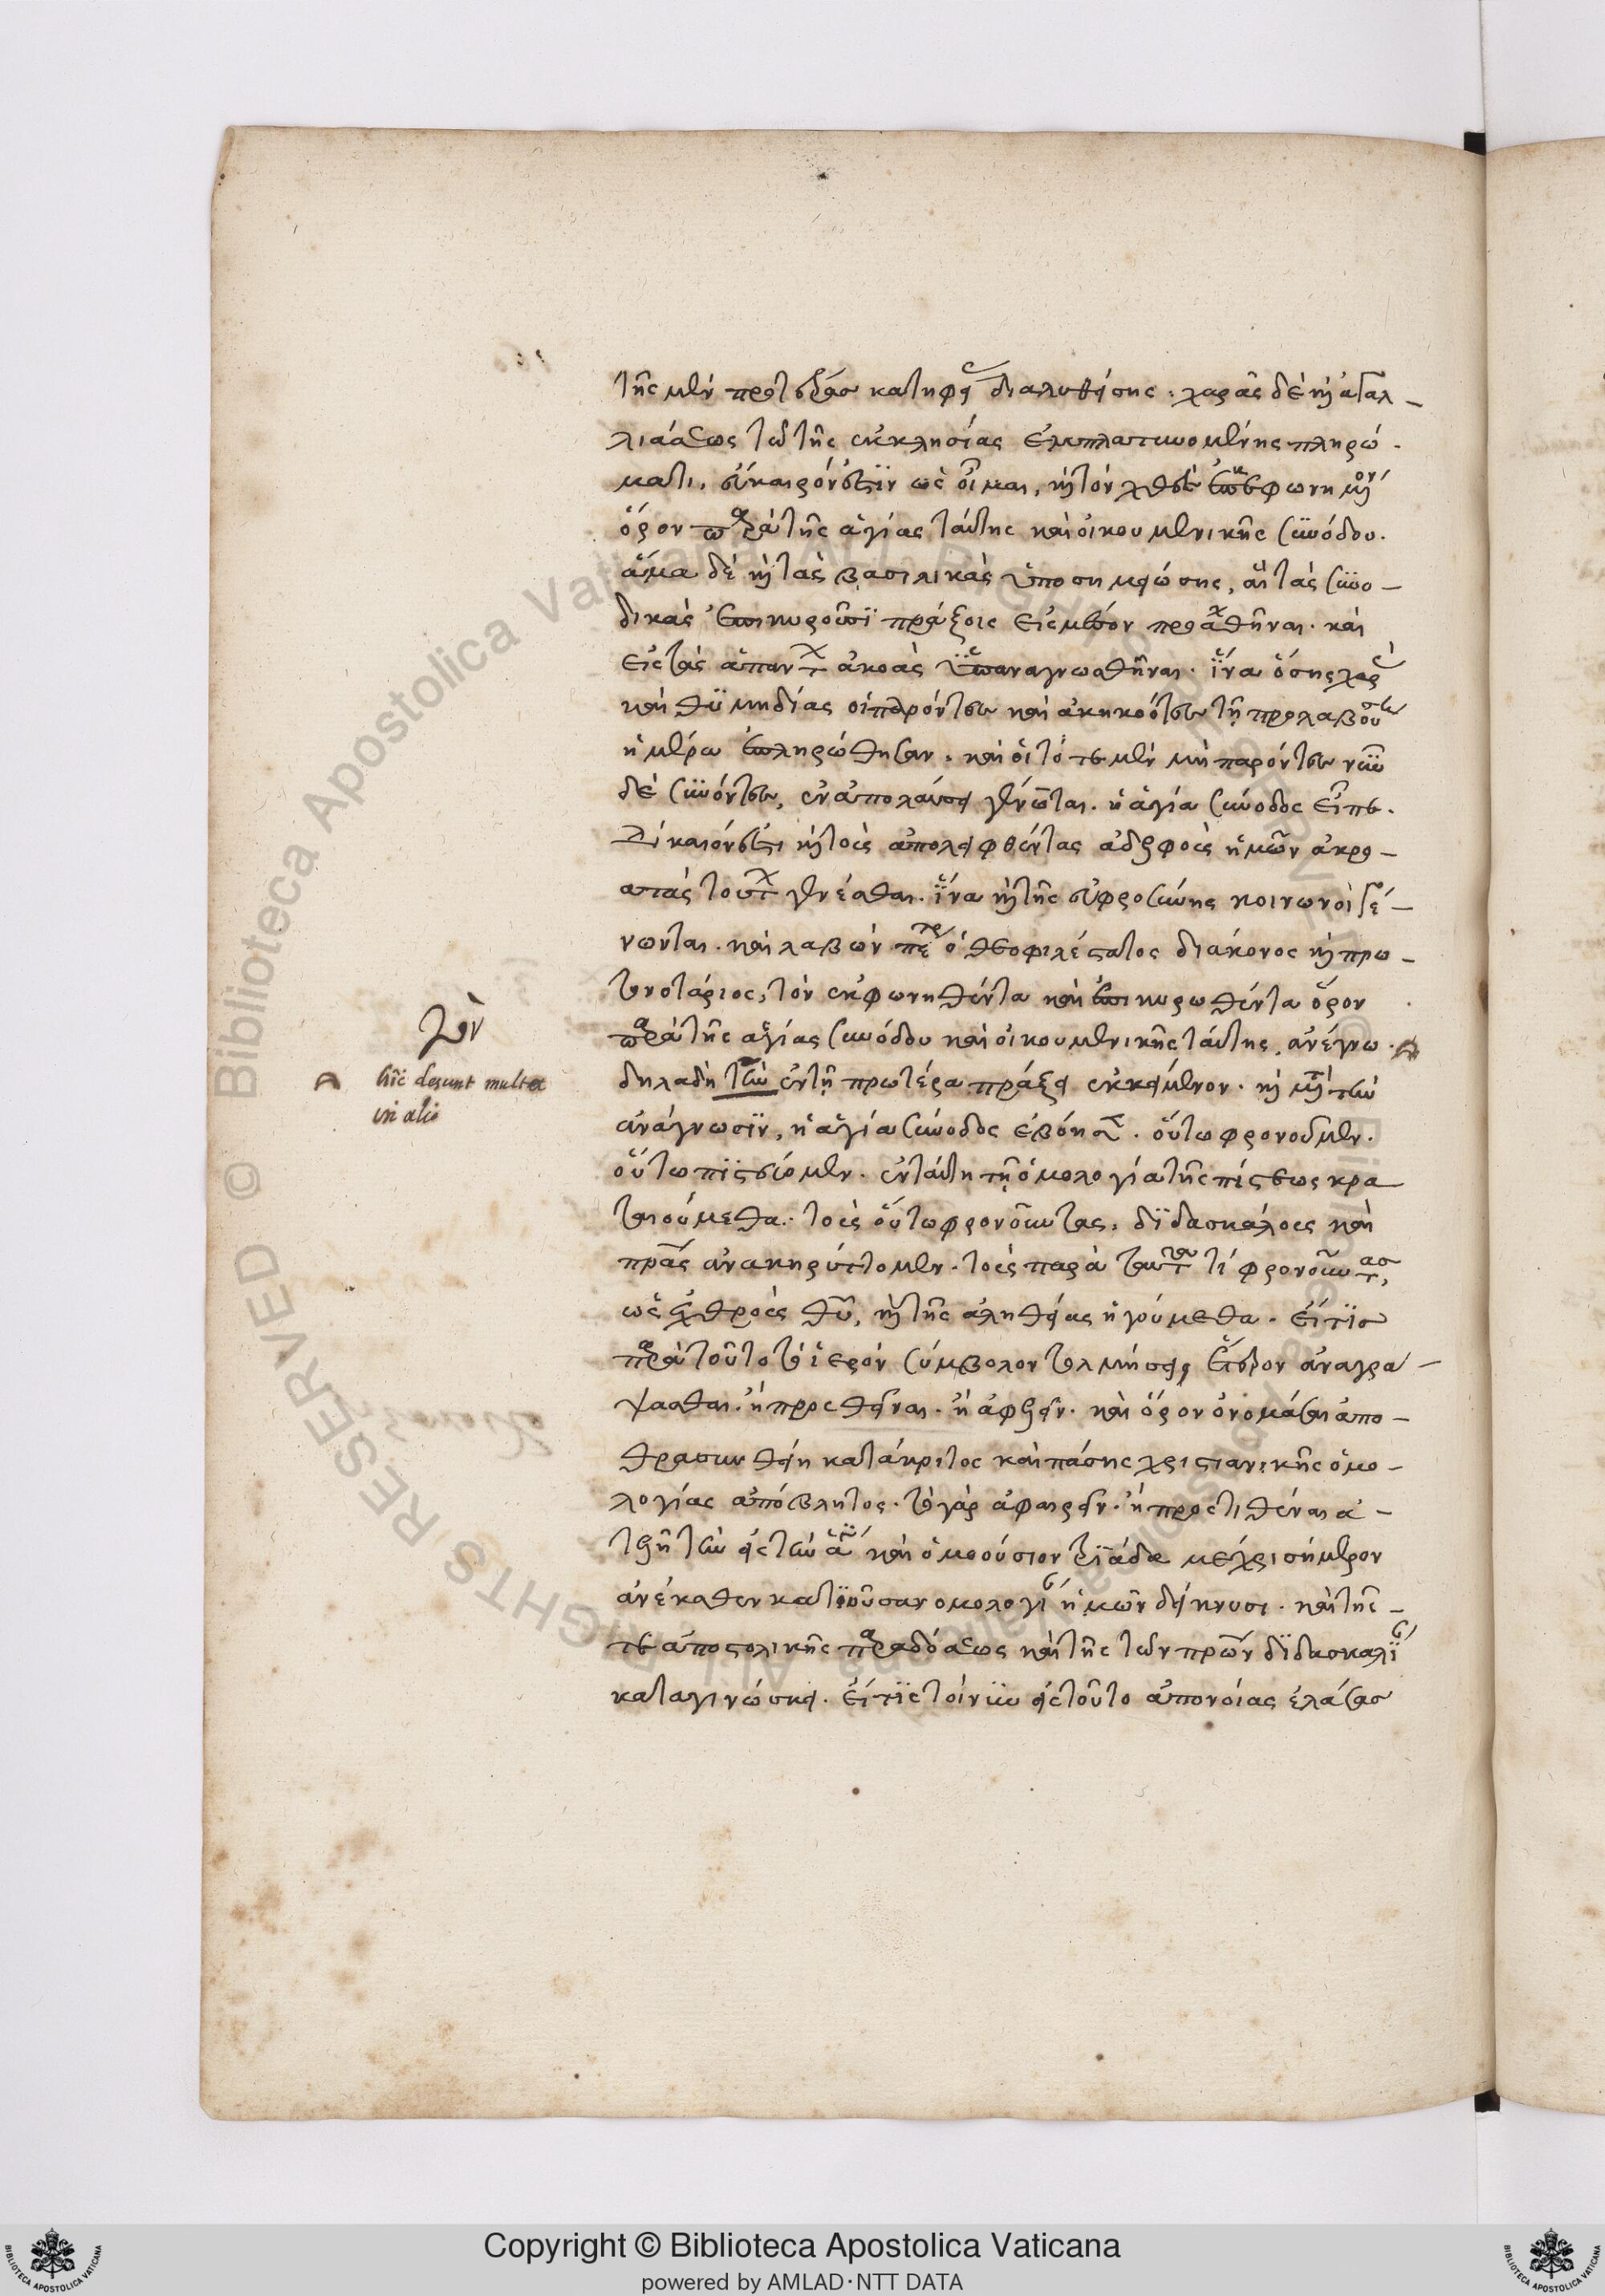 τῆς μὲν προτέρας κατηφείας διαλυθείσης. χαρᾶς δὲ καὶ ἀγαλ-
λιάσεως τῷ τῆς ἐκκλησίας ἐμπλατυνομένης πληρώ-
ματι, εὔκαιρόν ἐστιν ὡς οἶμαι, καὶ τὸν χθὲς ἐκφωνηθέντα
ὅρον παρὰ τῆς ἁγίας ταύτης καὶ οἰκουμενικῆς συνόδου.
ἅμα δὲ καὶ τὰς βασιλικὰς ὑποσημειώσεις, αἳ τὰς συνο-
δικὰς ἐπικυροῦσι πράξεις εἰς μέσον προαχθῆναι. καὶ
εἰς τὰς ἁπάντων ἀκοὰς ἐπαναγνωσθῆναι. ἵνα ὅσης χαρᾶς
καὶ θυμηδίας οἱ παρόντες καὶ ἀκηκοότες τῇ προλαβούσῃ
ἡμέρᾳ ἐπληρώθησαν. καὶ οἱ τότε μὲν μὴ παρόντες νῦν
δὲ συνόντες, ἐν ἀπολαύσει γένωνται. ἡ ἁγία σύνοδος εἶπε.
Δίκαιόν ἐστι καὶ τοὺς ἀπολειφθέντας ἀδελφοὺς ἡμῶν ἀκρο-
ατὰς τούτων γενέσθαι. ἵνα καὶ τῆς εὐφροσύνης κοινωνοὶ γέ-
νωνται. καὶ λαβὼν πέτρος ὁ θεοφιλέστατος διάκονος καὶ πρω-
τονοτάριος, τὸν ἐκφωνηθέντα καὶ ἐπικυρωθέντα ὅρον
παρὰ τῆς ἁγίας συνόδου καὶ οἰκουμενικῆς ταύτης, ἀνέγνω.
δηλαδὴ τὸν ἐν τῇ προτέρα πράξει ἐκκείμενον. καὶ μετὰ τὴν
ἀνάγνωσιν, ἡ ἁγία σύνοδος ἐβόησεν. οὕτω φρονοῦμεν.
οὕτω πιστεύομεν. ἐν ταύτῃ τῇ ὁμολογίᾳ τῆς πίστεως κρα
ταιούμεθα. τοὺς οὕτω φρονοῦντας, διδασκάλους καὶ
πρας ἀνακηρύττομεν. τοὺς παρὰ ταῦτα τί φρονοῦντας,
ὡς ἐχθροὺς θυ, καὶ τῆς ἀληθείας ἡγούμεθα. εἴ τις
παρὰ τοῦτο τὸ ἱερὸν σύμβολον τολμήσει, ἕτερον ἀναγρά-
ψασθαι. ἢ προσθεῖναι. ἢ ἀφελεῖν. καὶ ὅρον ὀνομάσαι ἀπο-
θρασυνθείη κατάκριτος καὶ πάσης χριστιανικῆς ὁμο-
λογίας ἀπόβλητος. τὸ γὰρ ἀφαιρεῖν. ἢ προστιθέναι ἀ-
τελῆ τὴν εἰς τὴν ἁγίαν καὶ ὁμοούσιον τριάδα μέχρι σήμερον
ἀνέκαθεν κατιοῦσαν ὁμολογίαν ἡμῶν δείκνυσι. καὶ τῆς
τε ἀποστολικῆς παραδόσεως καὶ τῆς τῶν πρων διδασκαλίας
καταγινώσκει. εἴ τις τοίνυν εἰς τοῦτο ἀπονοίας ἐλάσας
τὸν
hic desunt multa
in alio
Copyright © Biblioteca Apostolica Vaticana
powered by AMLAD·NTT DATA